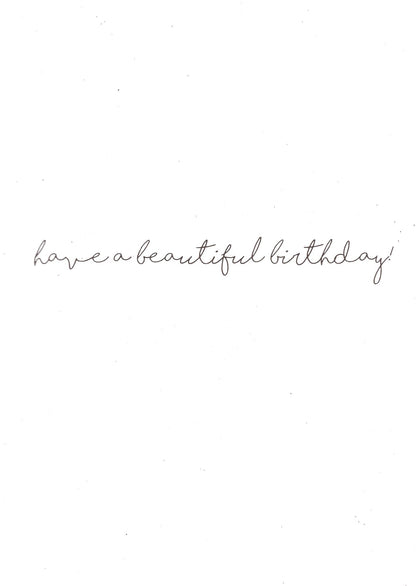 have a beautiful birthday!